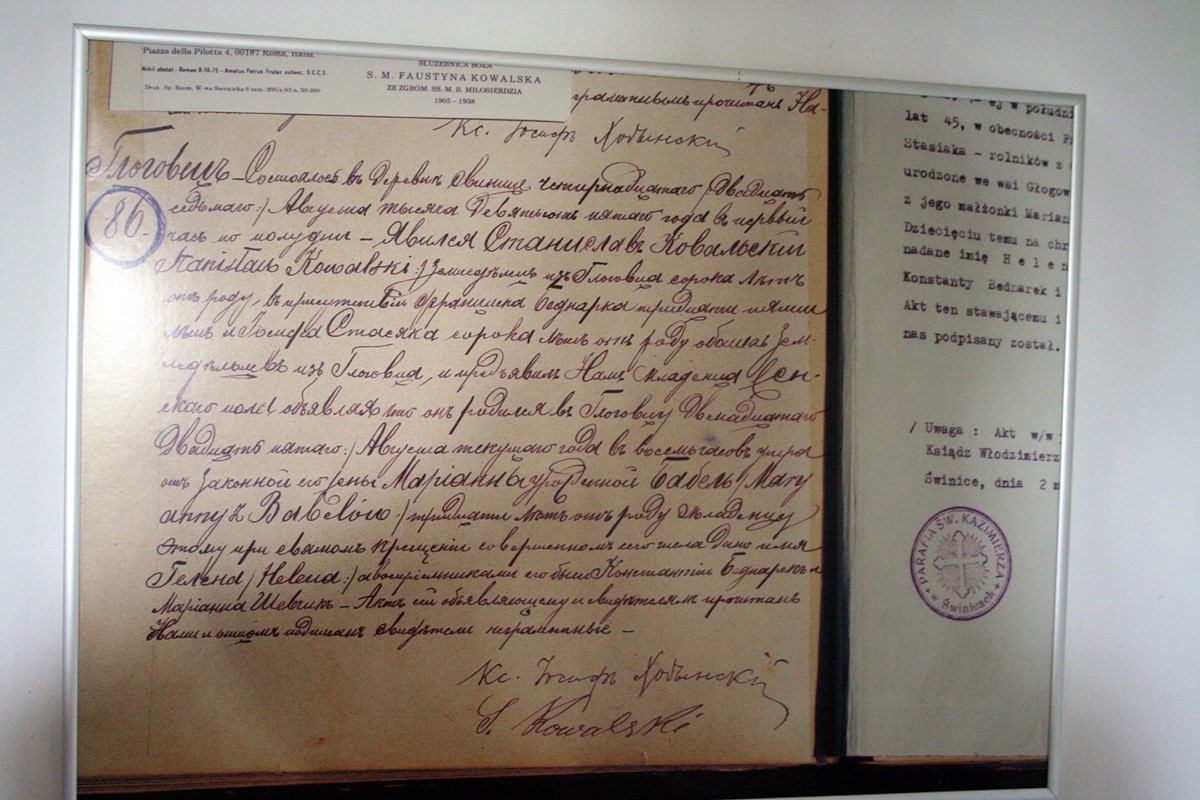 Piazza della Pilotta 4, 00187 Roma, Italia.
Nihil obstat - Romae 8-10-75 - Amatus Petrus Frutaz subsec. S.C.C.S
Druk. Sp. Rzem. W-wa
SŁUŻEBNICA BOŻA
S. M. FAUSTYNA KOWALSKA
ZE ZGROM. SS. M. B. MIŁOSIERDZIA
1905 - 1938
прочитанъ На-
Кс. Іосифъ Хобынскій
Глоговецъ – Состоялось въ деревнѣ Свинице четырнадцатаго /: двадцать
86.
седьмаго :/ Августа тысяча девятьсотъ пятаго года въ первый
часъ по полудни – Явился Станиславъ Ковальскій
Stanisław Kowalski :/ земледѣлецъ изъ Глоговца сорока лѣтъ
отъ роду, въ присутствіи Франциска Беднарка тридцати пяти
лѣтъ и Іосифа Стасяка сорока лѣтъ отъ роду обоихъ зем-
ледѣльцевъ изъ Глоговца, и предъявилъ Намъ младенца жен-
скаго пола объявляя что онъ родился въ Глоговцу двенадцатаго
двадцать пятаго :/ Августа текущаго года въ восемь часовъ утра
отъ законной его жены Маріанны урожденной Бабель / Mary
anny z Babelów :/ тридцати лѣтъ отъ роду Младенцу
этому при святомъ крещеніи совершенномъ сего числа дано имя
Гелена / Helena :/ а воспріемниками его были Константій Беднарекъ и
Маріанна Шевчикъ – Актъ сей объявляющему и свидѣтелямъ прочитанъ
Нами и отцомъ подписанъ свидѣтели неграмотные –
Кс. Іосифъ Хобынскій
S. Kowalski
w południ
lat 45, w obecności
Stasiaka - rolników z
urodzone we wsi Głogow
z jego małżonki Marian
Dziecięciu temu na chr
nadane imię H e l e n
Konstanty Bednarek i
Akt ten stawającemu i
nas podpisany został.
/ Uwaga : Akt w/w
Ksiądz Włodzimierz
Świnice, dnia 2 m
PARAFIA ŚW. KAZIMIERZA
w Świnicach